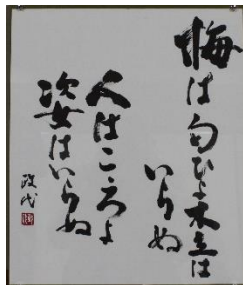 梅は匂ひよ木立は
いらぬ
人はこころよ
姿はいらぬ
政代